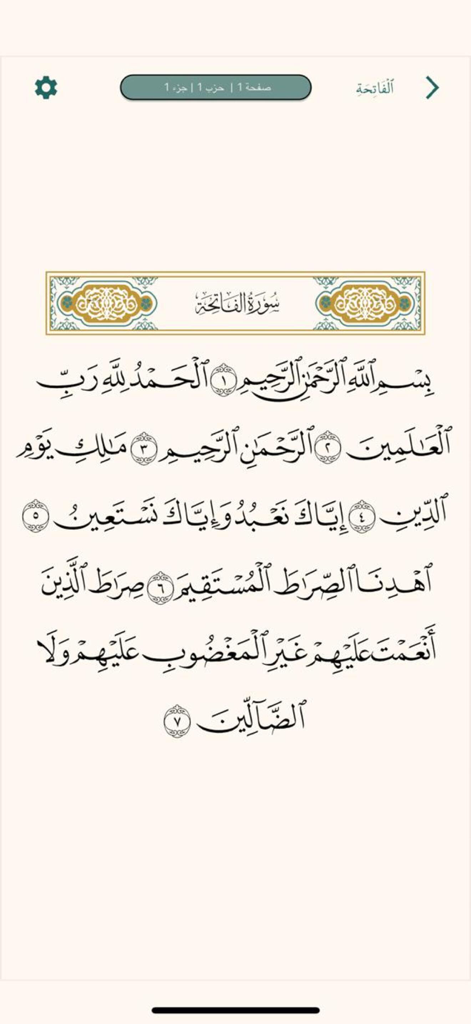 ٱلْفَاتِحَةِ
صفحة 1 | حزب 1 | جزء 1
سُورَةُ الفَاتِحَةِ
بِسْمِ ٱللَّهِ ٱلرَّحْمَٰنِ ٱلرَّحِيمِ ١ ٱلْحَمْدُ لِلَّهِ رَبِّ
ٱلْعَٰلَمِينَ ٢ ٱلرَّحْمَٰنِ ٱلرَّحِيمِ ٣ مَٰلِكِ يَوْمِ
ٱلدِّينِ ٤ إِيَّاكَ نَعْبُدُ وَإِيَّاكَ نَسْتَعِينُ ٥
ٱهْدِنَا ٱلصِّرَٰطَ ٱلْمُسْتَقِيمَ ٦ صِرَٰطَ ٱلَّذِينَ
أَنْعَمْتَ عَلَيْهِمْ غَيْرِ ٱلْمَغْضُوبِ عَلَيْهِمْ وَلَا
ٱلضَّآلِّينَ ٧